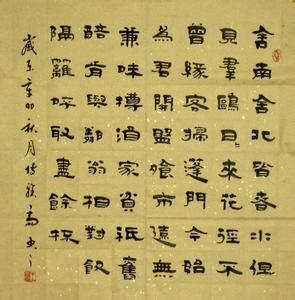 舍南舍北皆春水但
見羣鷗日日來花徑不
曾緣客掃蓬門今始
為君開盤飧市遠無
兼味樽酒家貧祇舊
醅肯與鄰翁相對飲
隔籬呼取盡餘杯
歲在辛卯秋月